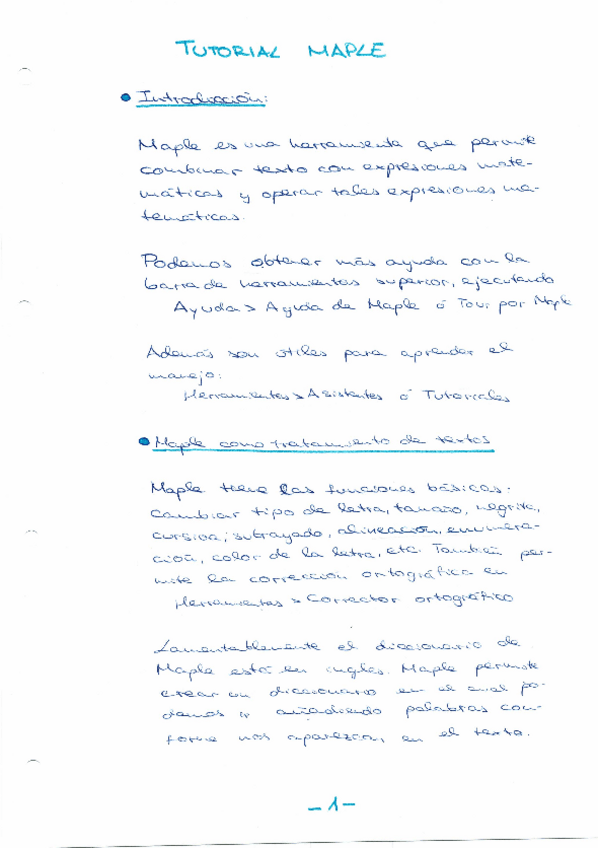 TUTORIAL MAPLE
• Introducción:
Maple es una herramienta que permite
combinar texto con expresiones mate-
máticas y operar tales expresiones ma-
temáticas.
Podemos obtener más ayuda con la
barra de herramientas superior, ejecutando
Ayuda > Ayuda de Maple ó Tour por Maple
Además son útiles para aprender el
manejo:
Herramientas > Asistentes ó Tutoriales
• Maple como tratamiento de textos
Maple tiene las funciones básicas:
Cambiar tipo de letra, tamaño, negrita,
cursiva, subrayado, alineación, enumera-
ción, color de la letra, etc. También per-
mite la corrección ortográfica en
Herramientas > Corrector ortográfico
Lamentablemente el diccionario de
Maple está en inglés. Maple permite
crear un diccionario en el cual po-
damos ir añadiendo palabras con-
forme nos aparezcan, en el texto.
- 1 -